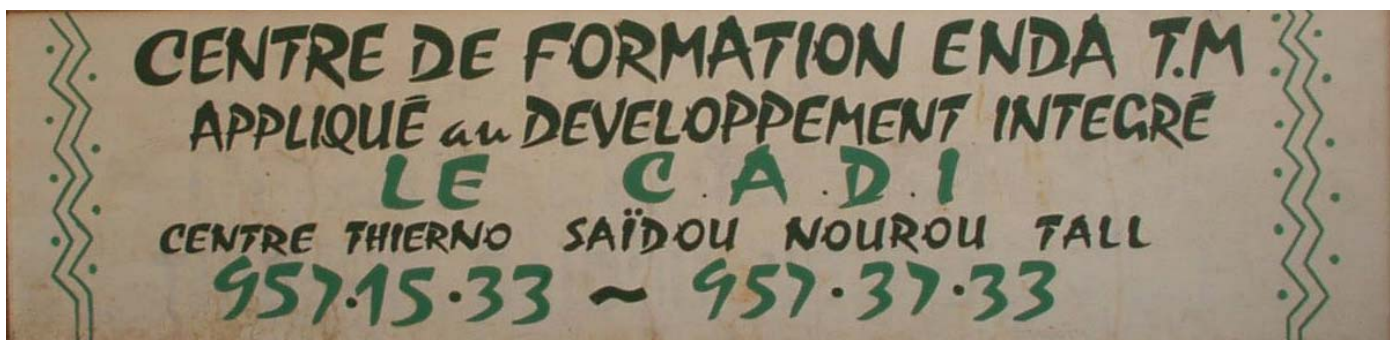 CENTRE DE FORMATION ENDA T.M
APPLIQUÉ au DEVELOPPEMENT INTEGRÉ
LE C.A.D.I
CENTRE THIERNO SAÏDOU NOUROU TALL
957.15.33 ~ 957.37.33